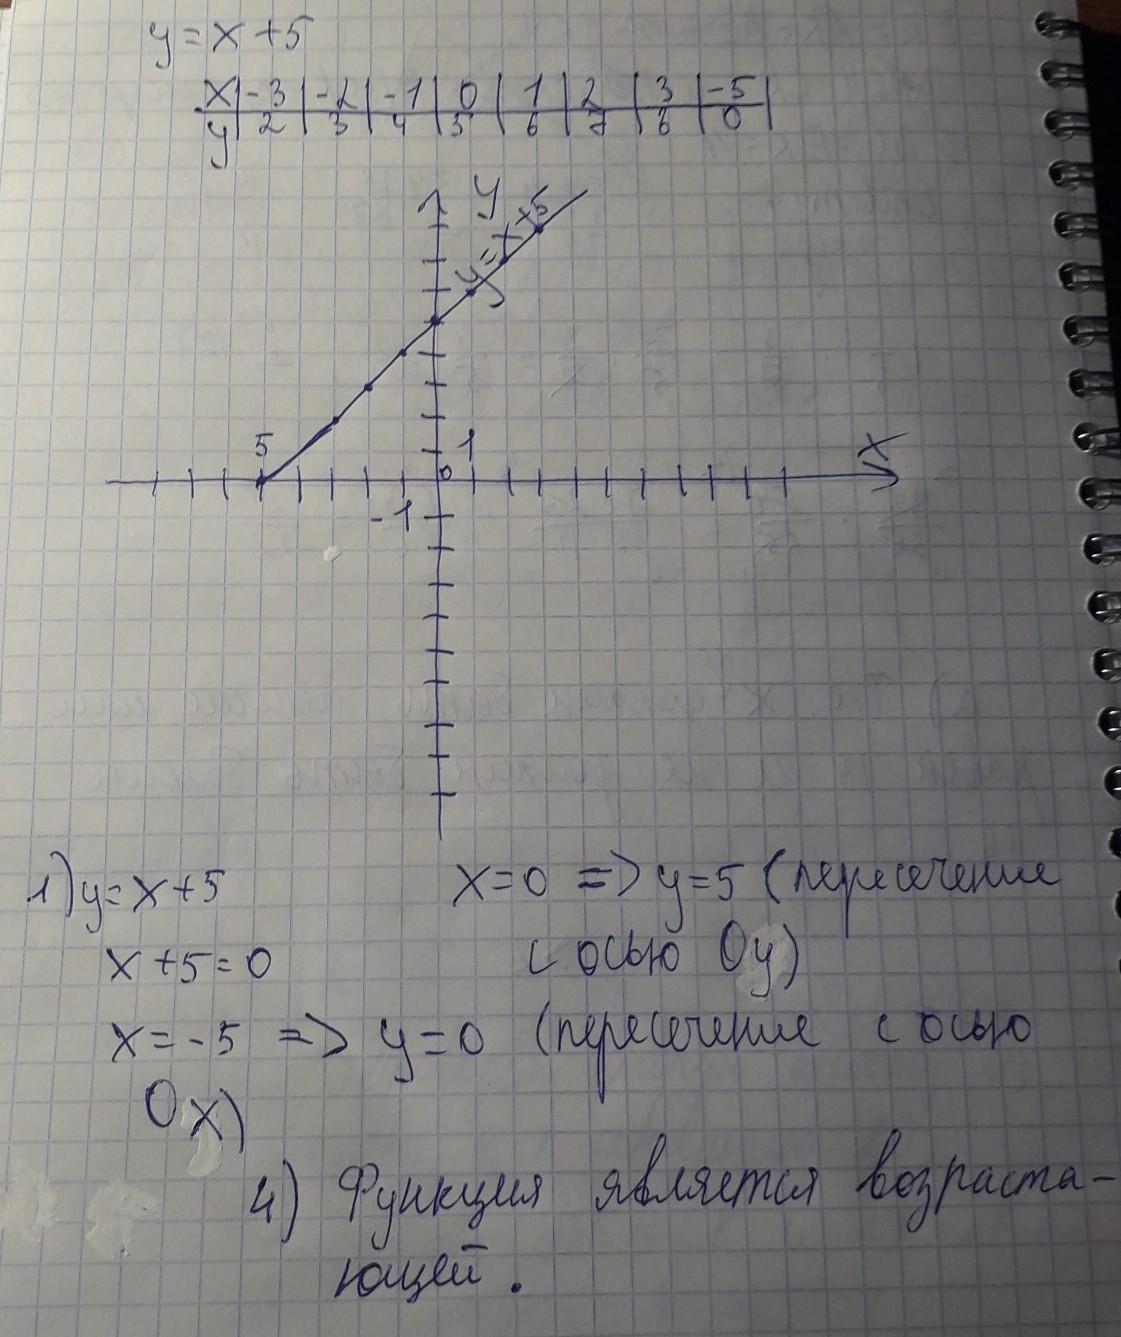 y = x + 5
x | -3 | -2 | -1 | 0 | 1 | 2 | 3 | -5 |
y | 2 | 3 | 4 | 5 | 6 | 7 | 8 | 0 |
y
y = x + 5
5
1
x
0
-1
1) y = x + 5
x = 0 => y = 5 (пересечение
с осью Oy)
x + 5 = 0
x = -5 => y = 0 (пересечение с осью
Ox)
4) Функция является возраста-
ющей.